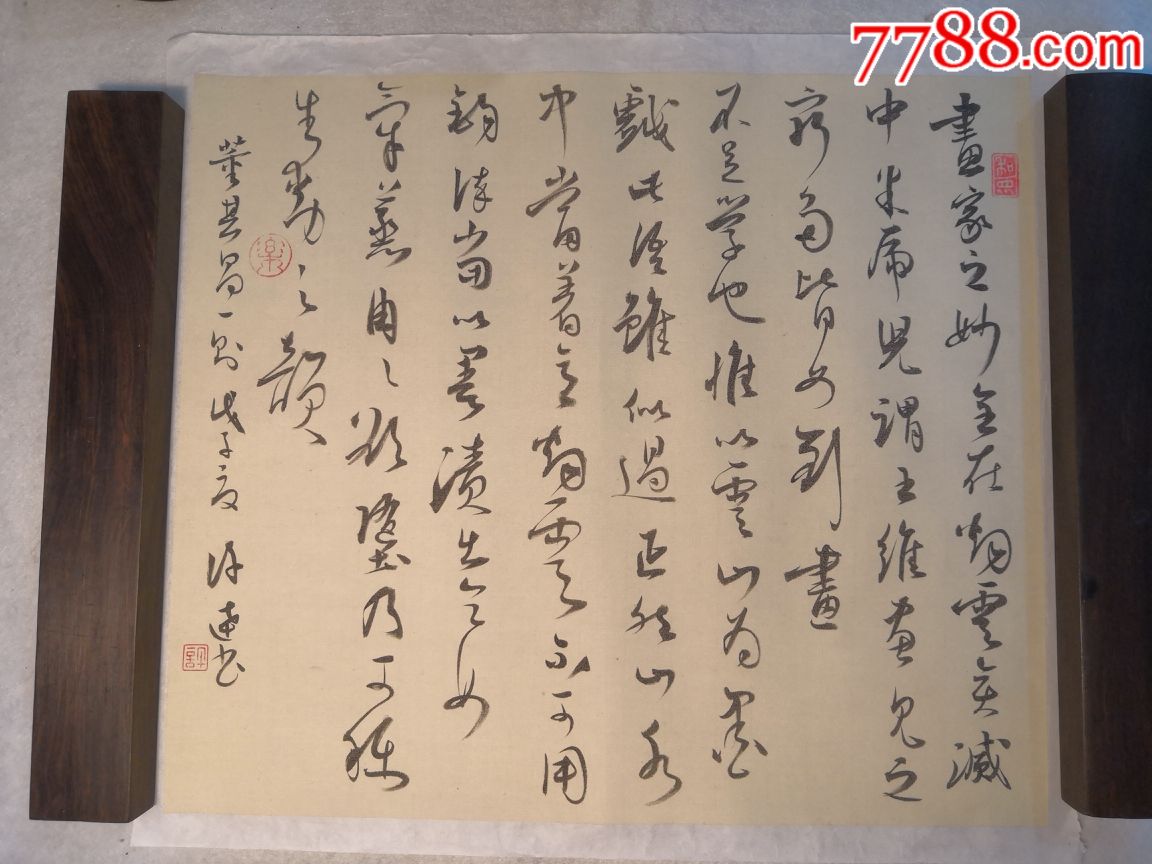 畫家之妙全在烟雲变滅
中米虎児謂王維画見之
最多皆如刻畫
不足学也惟以雲山为墨
戲此语雖似過正然山水
中當着意烟雲不可用
鈎染當以墨漬出令如
气蒸冉々欲墜乃可称
生動之韻
董其昌一则 戊子夏 许 书
樂
許
7788.com